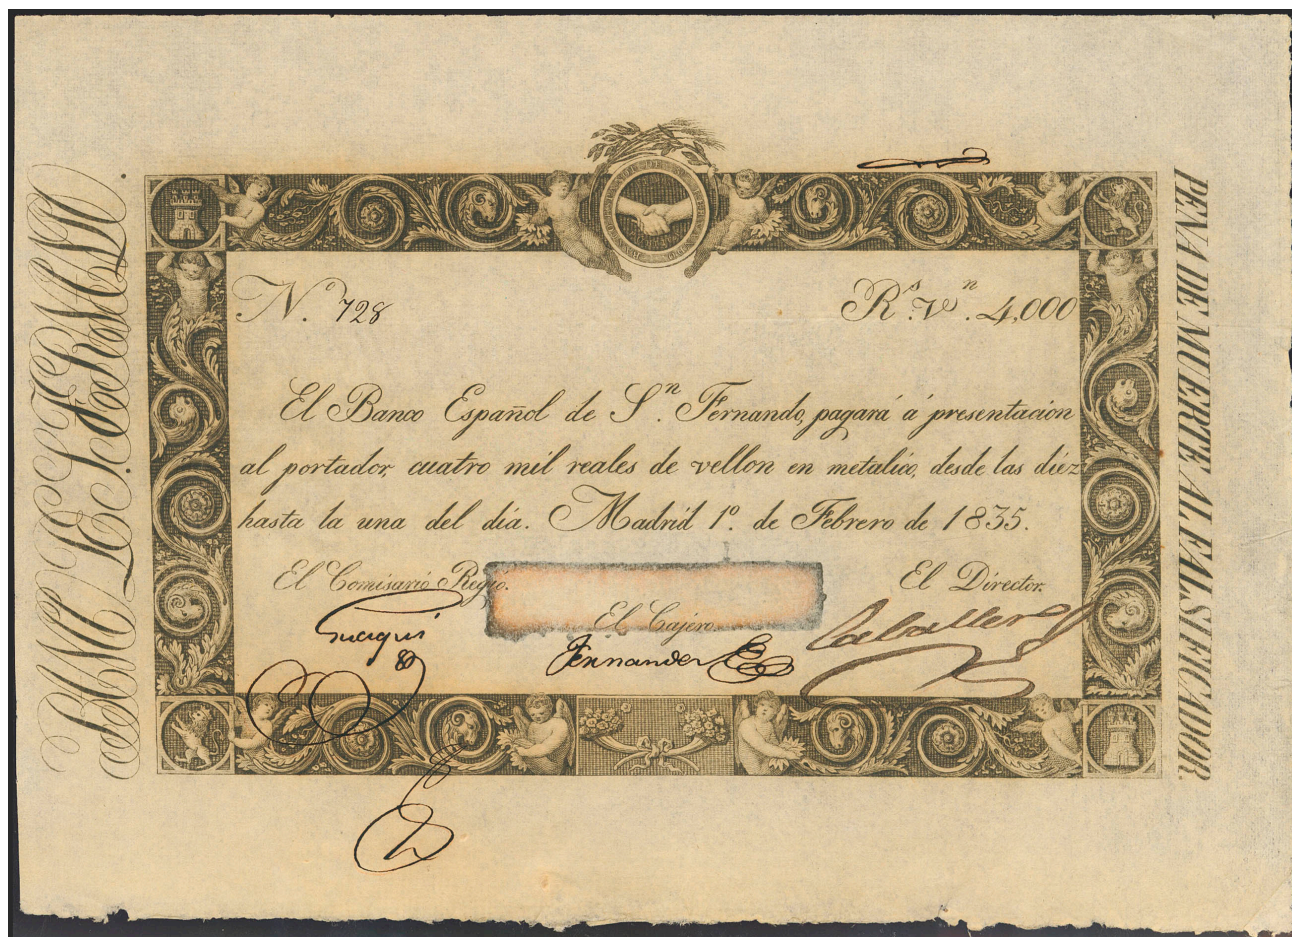 BANCO DE S. FERNANDO.
N.º 728
R.s V.n 4,000
El Banco Español de S.n Fernando, pagará á presentacion
al portador, cuatro mil reales de vellon en metalico, desde las diéz
hasta la una del día. Madrid 1º. de Febrero de 1835.
El Comisario Regio.
El Director.
El Cajero
Guaqui
Fernandez
Caballero
PENA DE MUERTE AL FALSIFICADOR.